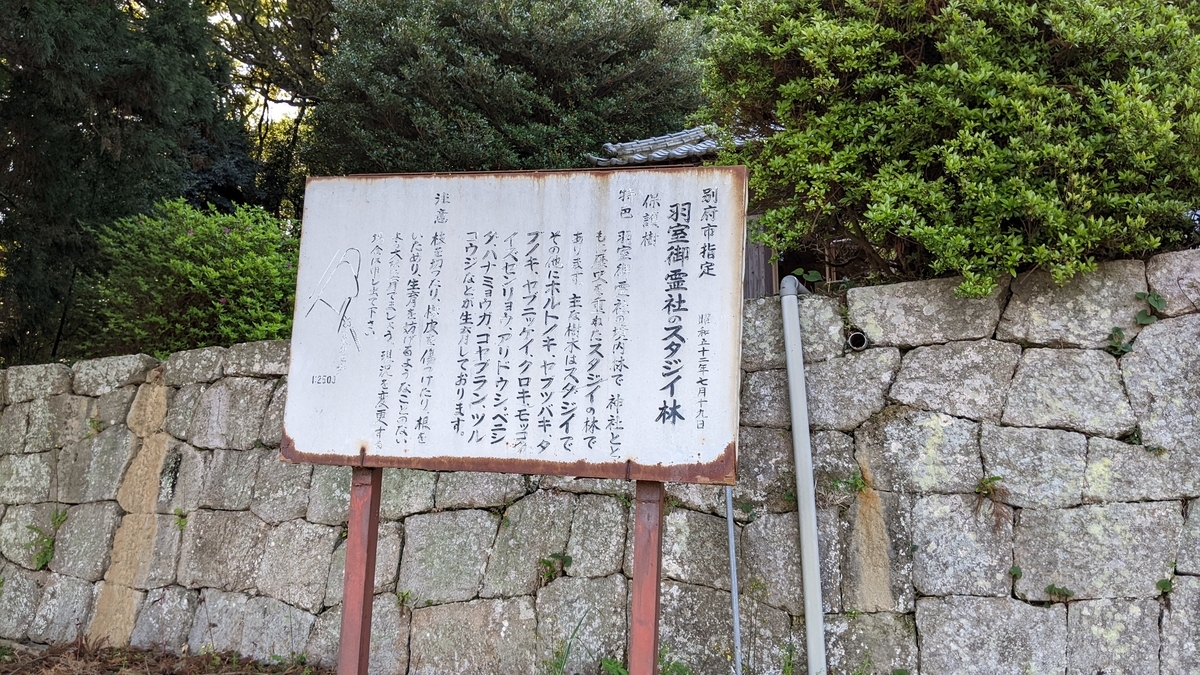 別府市指定
昭和五十二年七月十九日
羽室御霊社のスダジイ林
保護樹
特色 羽室御霊社の境内林で 神社とと
も 歴史を重ねたスダジイの林で
あります 主な樹木はスダジイで
その他にホルトノキ、ヤブツバキ、タ
ブノキ、ヤブニッケイ、クロキ、モッコク
イズセンリョウ、アリドウシ、ベニシ
ダ、ハナミョウガ、コヤブラン、ツル
コウジなどが生育しております。
注意 枝を切ったり、樹皮を傷つけたり、根を
いためり、生育を妨げるようなことのない
よう大切に しましょう、現状を変更する
場合は申し出て下さい
1:2500